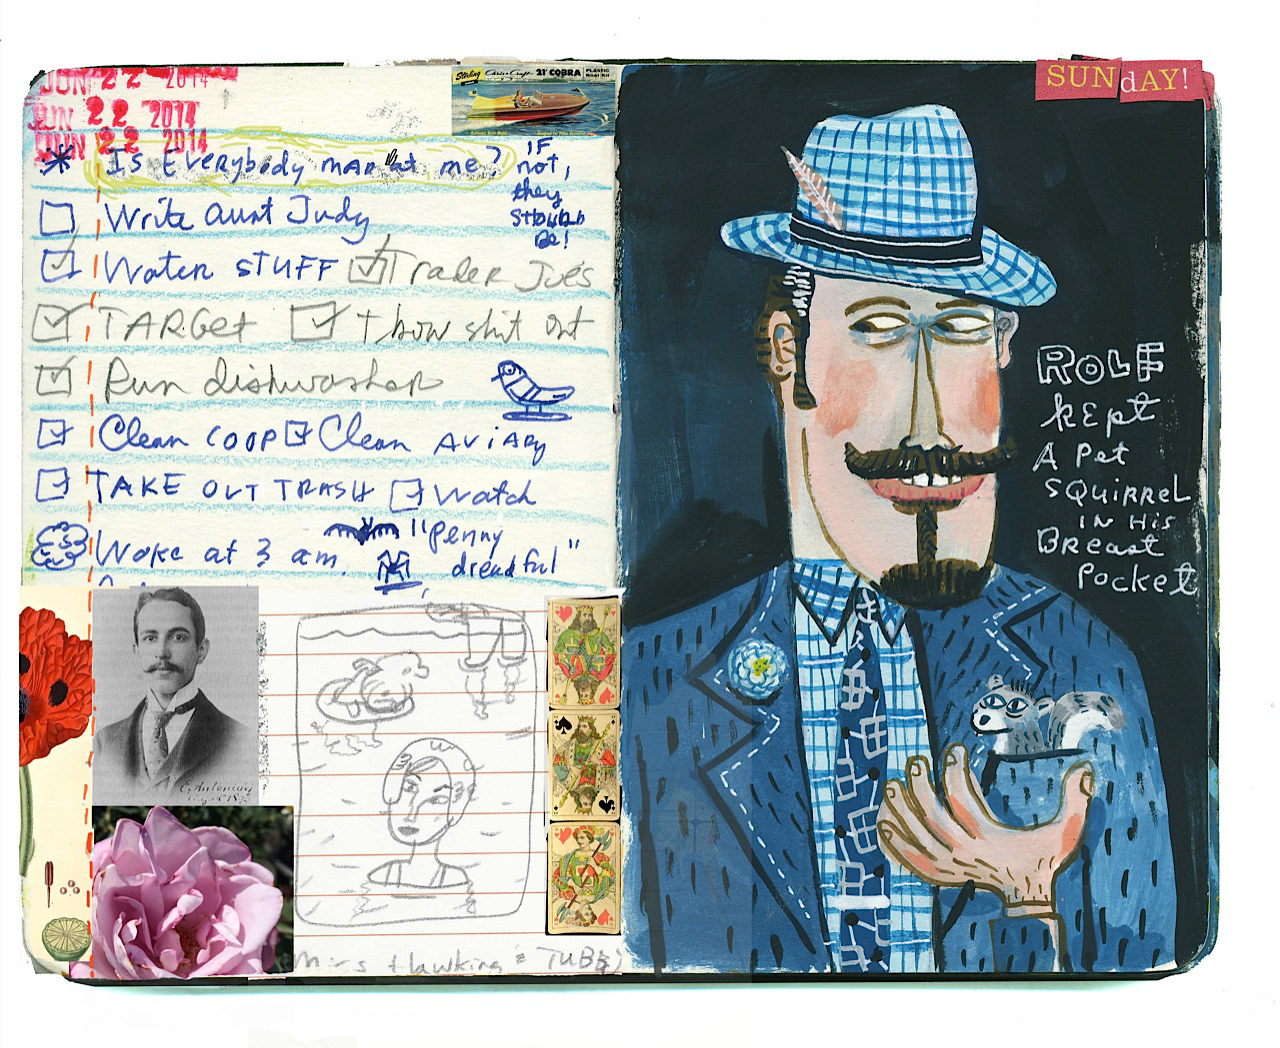 JUN 22 2014
JUN 22 2014
JUN 22 2014
Sterling Chris-Craft 21' COBRA PLASTIC Boat Kit
SUNdAY!
* Is Everybody mad at me?
IF not, they SHOULD Be!
Write aunt Judy
Water STUFF Trader Joe's
TARGet throw shit out
Run dishwasher
Clean COOP Clean AVIARY
TAKE OUT TRASH Watch
"Penny dreadful"
Woke at 3 am.
Mrs Hawking & TUBBS
ROLF
kept
A Pet
SQUIRREL
IN His
Breast
Pocket